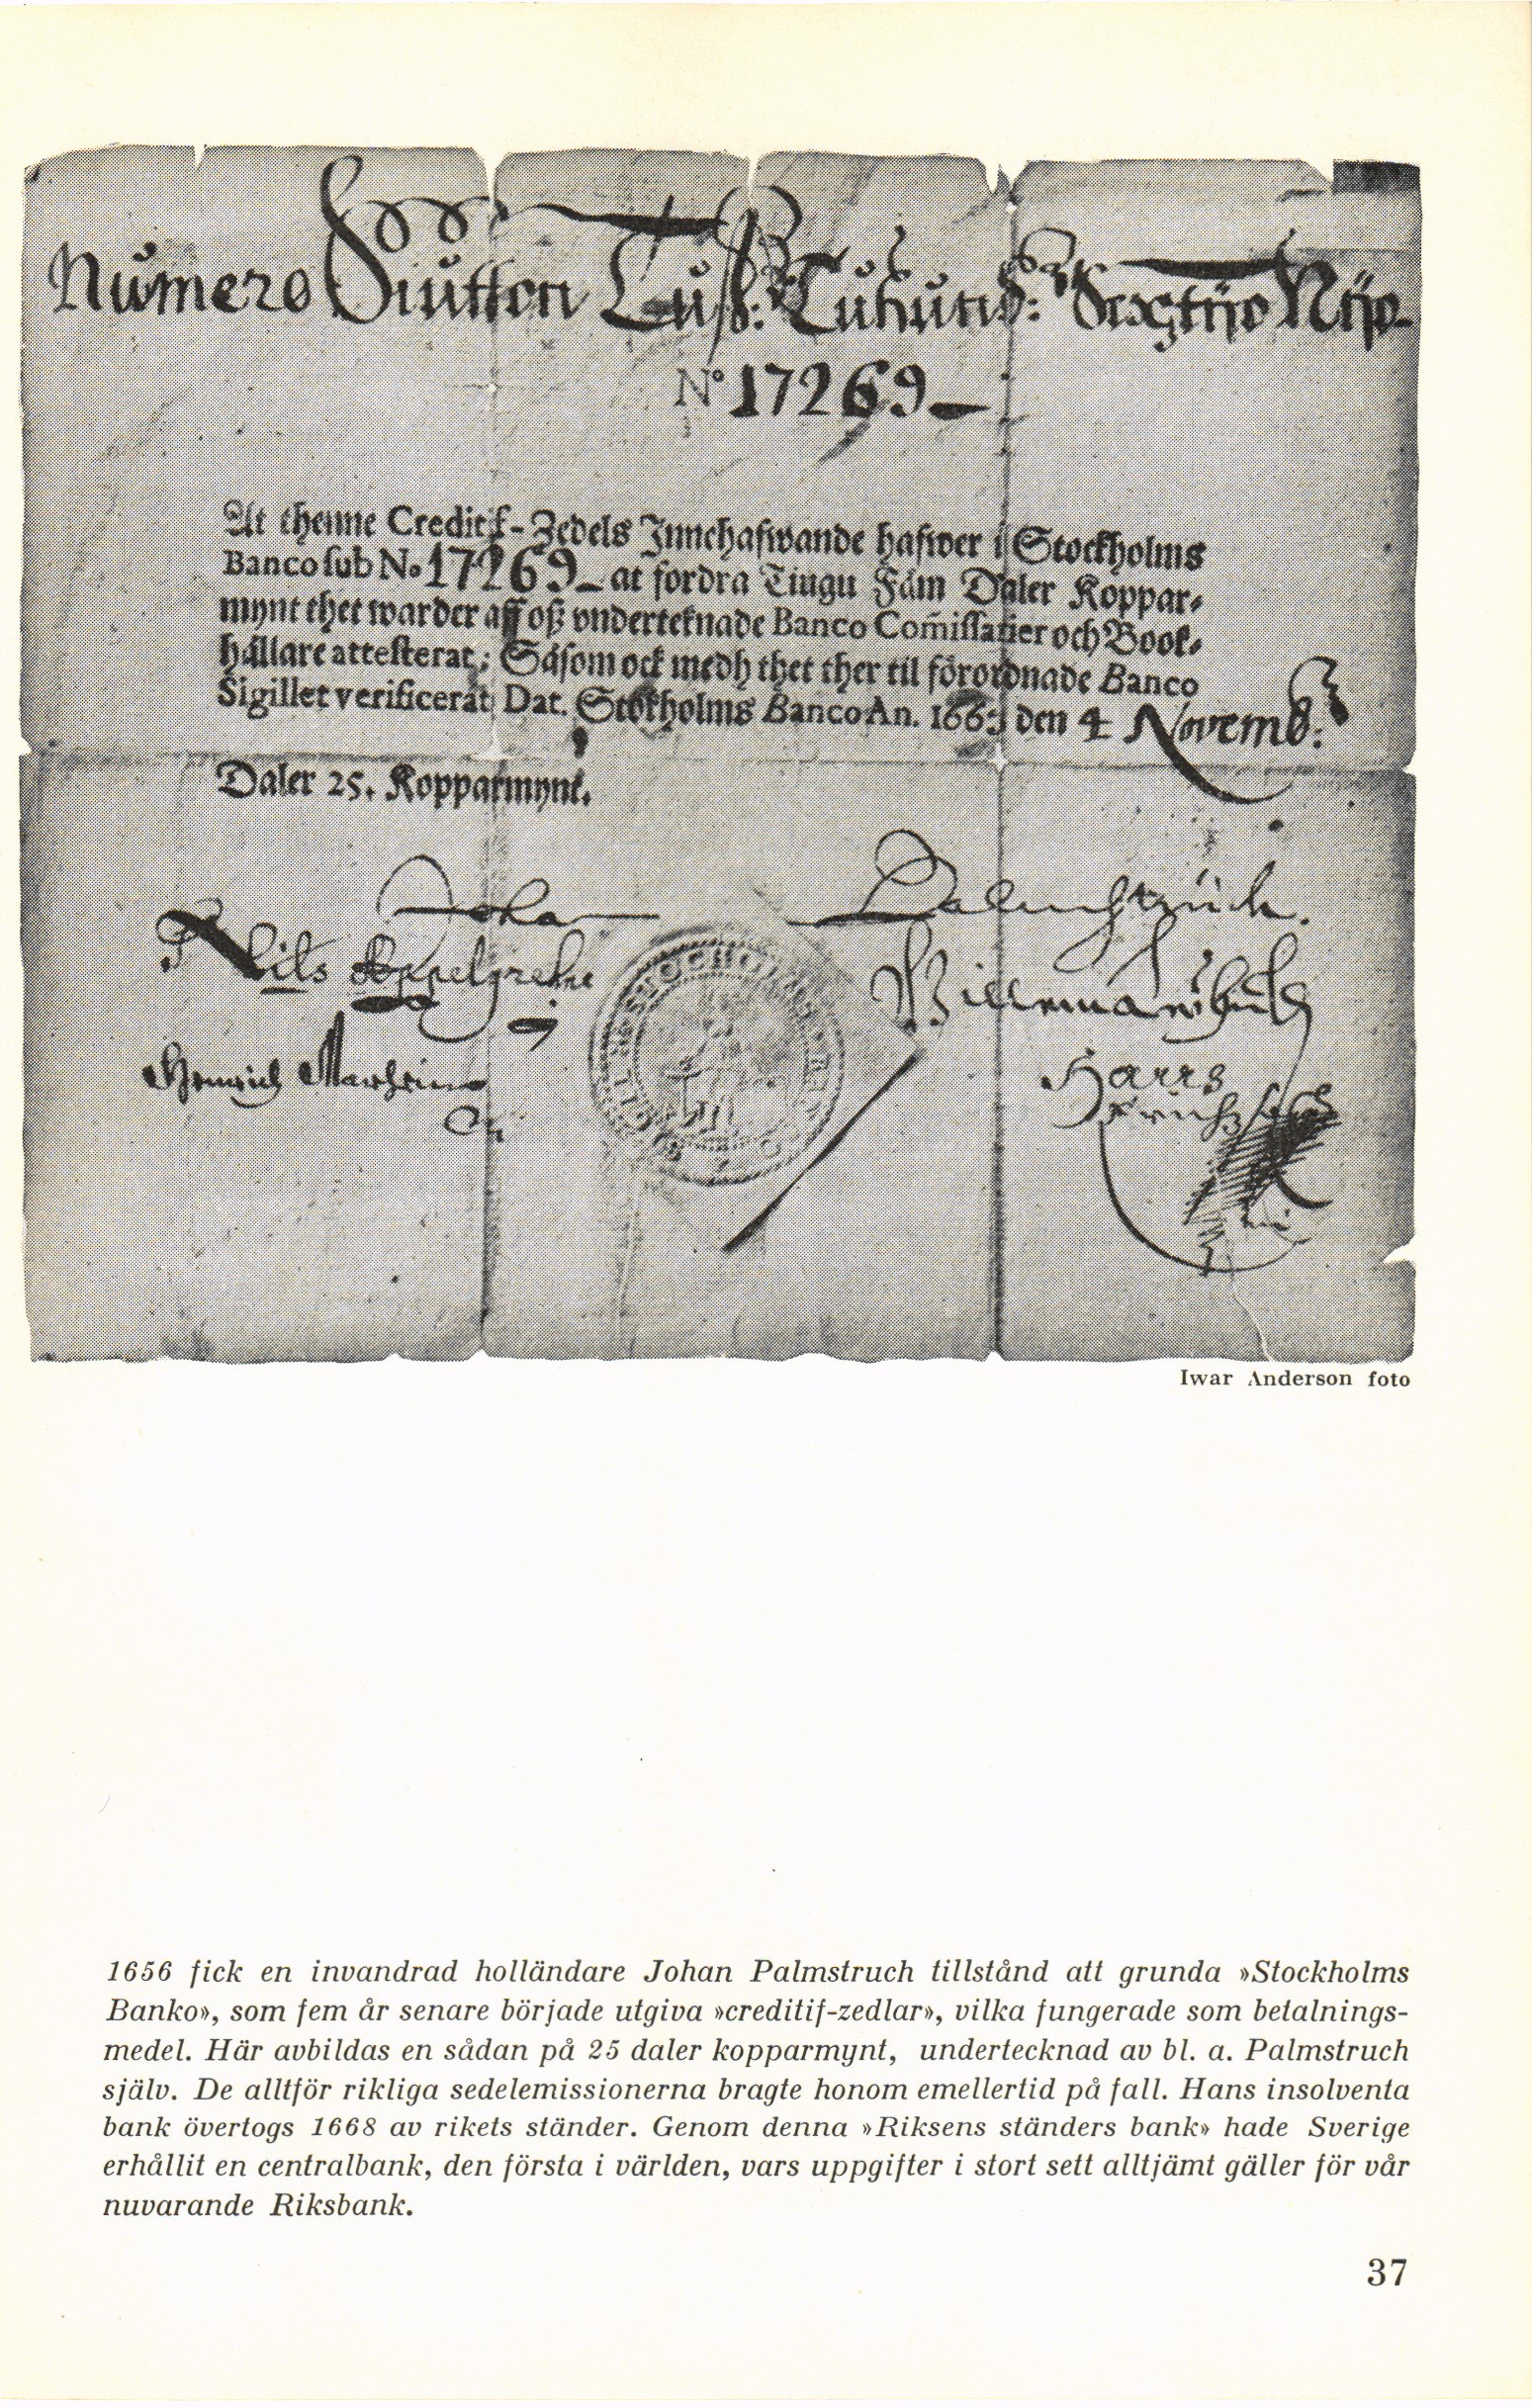 Numero Siutton Tuß: Tuhund: Sextijo Nijo-
No 17269_
At thenne Creditif-Zedels Innehafwande hafwer i Stockholms
Banco sub No 17269_ at fordra Tiugu Fäm Daler Koppar-
mynt thet warder aff oß vnderteknade Banco Com̃issarier och Book-
hållare attesterat; Såsom ock medh thet ther til förordnade Banco
Sigillet verificerat Dat. Stokholms Banco An. 1663 den 4 Novemb:
Daler 25. Kopparmynt.
Johan Palmstruch.
Nils
Hans
Iwar Anderson foto
1656 fick en invandrad holländare Johan Palmstruch tillstånd att grunda »Stockholms
Banko», som fem år senare började utgiva »creditif-zedlar», vilka fungerade som betalnings-
medel. Här avbildas en sådan på 25 daler kopparmynt, undertecknad av bl. a. Palmstruch
själv. De alltför rikliga sedelemissionerna bragte honom emellertid på fall. Hans insolventa
bank övertogs 1668 av rikets ständer. Genom denna »Riksens ständers bank» hade Sverige
erhållit en centralbank, den första i världen, vars uppgifter i stort sett alltjämt gäller för vår
nuvarande Riksbank.
37